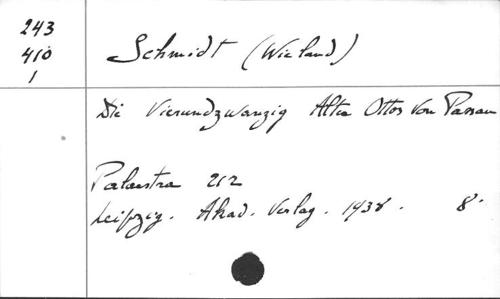 243
410
1
Schmidt (Wieland)
Die Vierundzwanzig Alten Ottos von Passau
Palaestra 212
Leipzig. Akad. Verlag. 1938. 8°